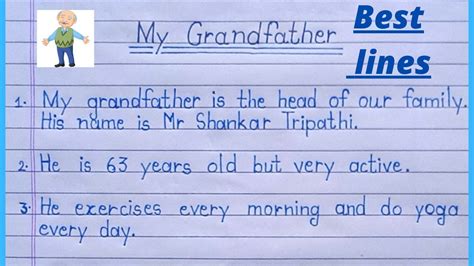 My Grandfather
Best
lines
1. My grandfather is the head of our family.
His name is Mr Shankar Tripathi.
2. He is 63 years old but very active.
3. He exercises every morning and do yoga
every day.